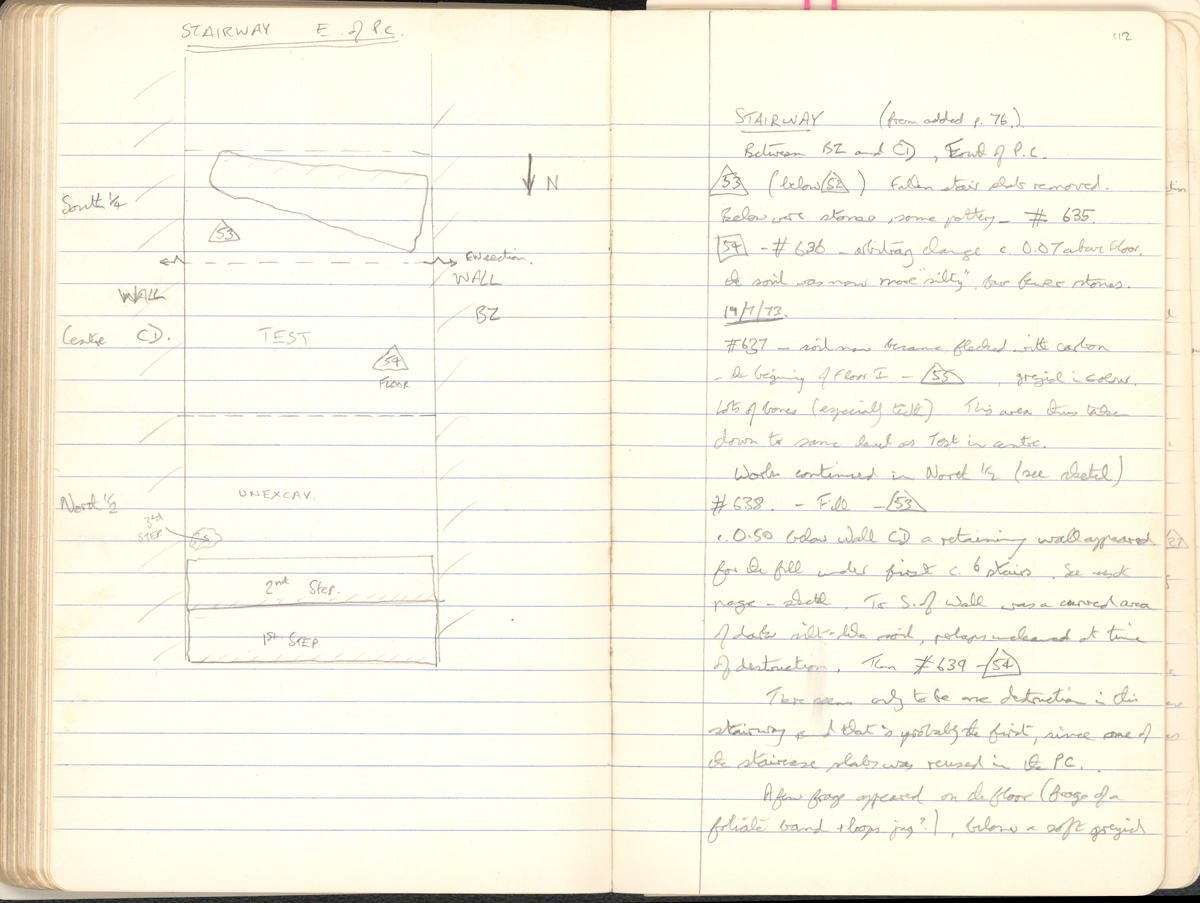 STAIRWAY E. of P.C.
N
South 1/4
53
EW section.
WALL
WALL
BZ
Centre CD.
TEST
54
FLOOR
UNEXCAV.
North 1/2
3rd
STEP
2nd STEP.
1st STEP
112
STAIRWAY (from added p. 76.)
Between BZ and CD, E of P.C.
53 (below 52) Fallen stair slab removed.
Below were stones, some pottery - # 635.
54 - # 636 - arbitrary change c. 0.07 above floor.
The soil was now more "silty", far fewer stones.
19/7/73.
#637 - soil now became flecked with carbon
- the begining of Floor I - 55, greyish in colour.
Lots of bones (especially teeth) This area thus taken
down to same level as Test in centre.
Work continued in North 1/2 (see sketch)
# 638. - Fill - 53
c. 0.50 below Wall CD a retaining wall appeared
for the fill under first c. 6 stairs. See next
page - sketch. To S. of Wall was a curved area
of dark silt-like soil, perhaps uncleaned at time
of destruction. Then # 639 - 54
There seems only to be one destruction in this
stairway and that is probably the first, since one of
the staircase slabs was reused in the P.C.
A few frags appeared on the floor (frags of a
foliate band + loops jug?), below a soft greyish